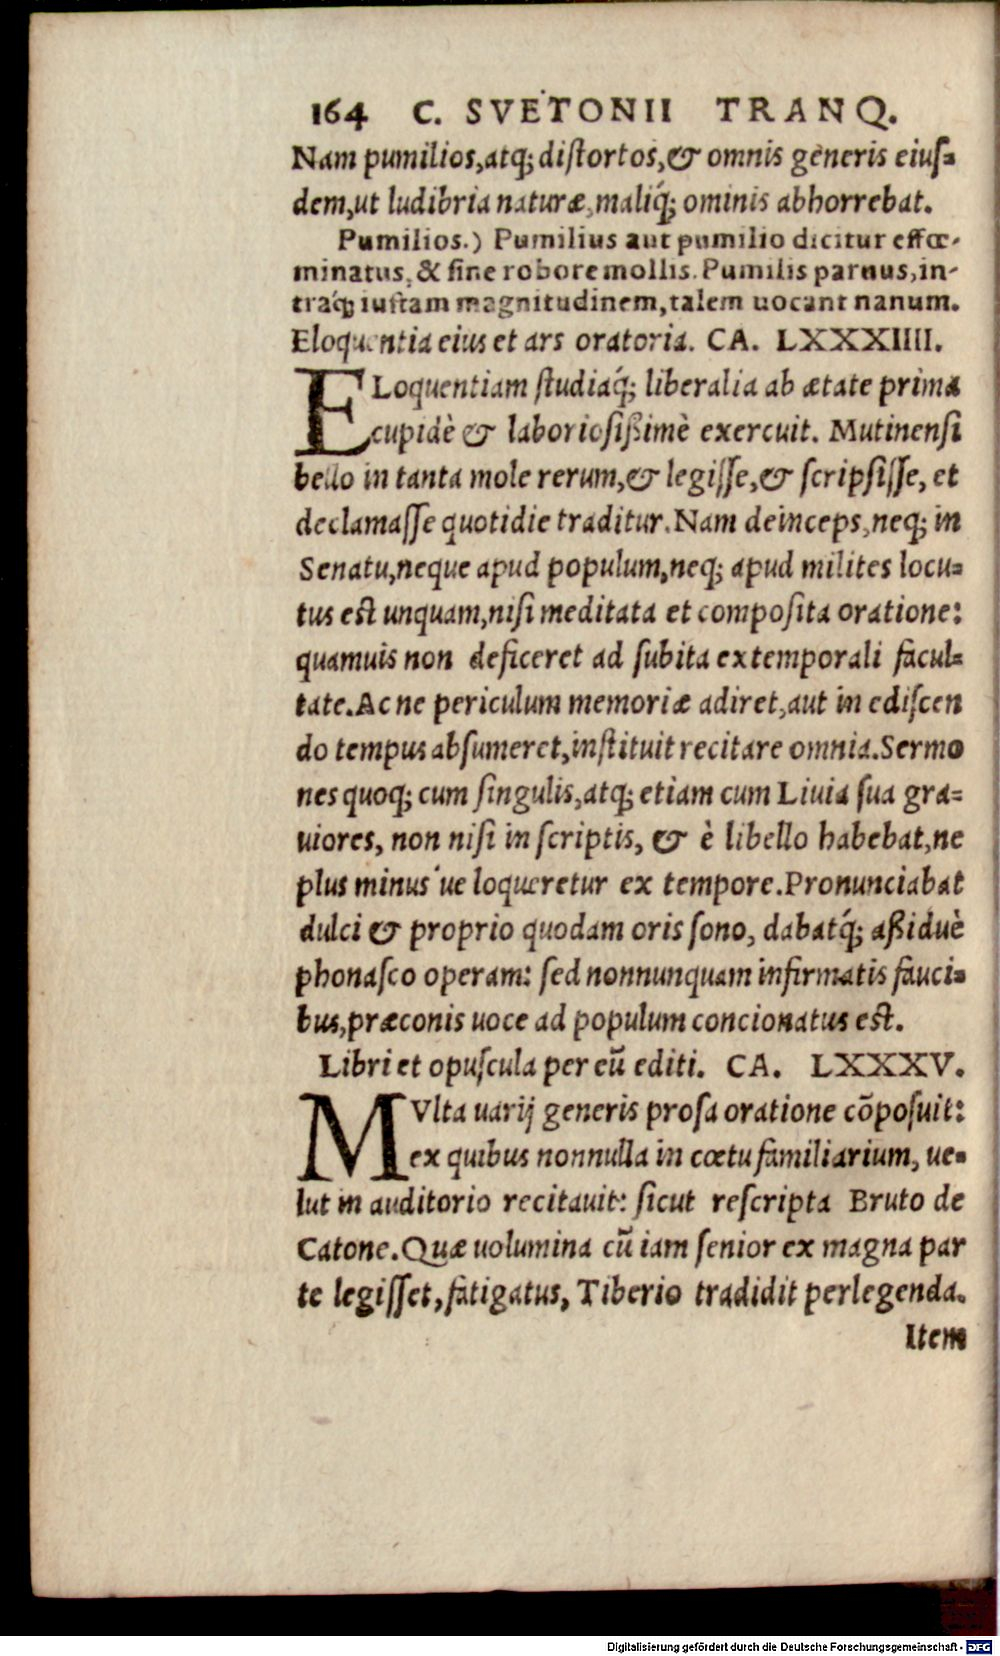 164 C. SVETONII TRANQ.
Nam pumilios,atq; distortos,& omnis generis eius=
dem,ut ludibria naturæ,maliq́; ominis abhorrebat.
Pumilios.) Pumilius aut pumilio dicitur effœ-
minatus, & sine robore mollis. Pumilis paruus,in-
traq́; iustam magnitudinem,talem uocant nanum.
Eloquentia eius et ars oratoria. CA. LXXXIIII.
ELoquentiam studiaq́; liberalia ab ætate prima
cupidè & laboriosißimè exercuit. Mutinensi
bello in tanta mole rerum,& legisse,& scripsisse, et
declamasse quotidie traditur.Nam deinceps,neq; in
Senatu,neque apud populum,neq; apud milites locu=
tus est unquam,nisi meditata et composita oratione:
quamuis non deficeret ad subita extemporali facul=
tate.Ac ne periculum memoriæ adiret,aut in ediscen
do tempus absumeret,instituit recitare omnia.Sermo
nes quoq; cum singulis,atq; etiam cum Liuia sua gra=
uiores, non nisi in scriptis, & è libello habebat,ne
plus minus'ue loqueretur ex tempore.Pronunciabat
dulci & proprio quodam oris sono, dabatq́; aßiduè
phonasco operam: sed nonnunquam infirmatis fauci=
bus,præconis uoce ad populum concionatus est.
Libri et opuscula per eũ editi. CA. LXXXV.
MVlta uarij generis prosa oratione cõposuit:
ex quibus nonnulla in cœtu familiarium, ue=
lut in auditorio recitauit: sicut rescripta Bruto de
Catone.Quæ uolumina cũ iam senior ex magna par
te legisset,fatigatus, Tiberio tradidit perlegenda.
Item
Digitalisierung gefördert durch die Deutsche Forschungsgemeinschaft - DFG